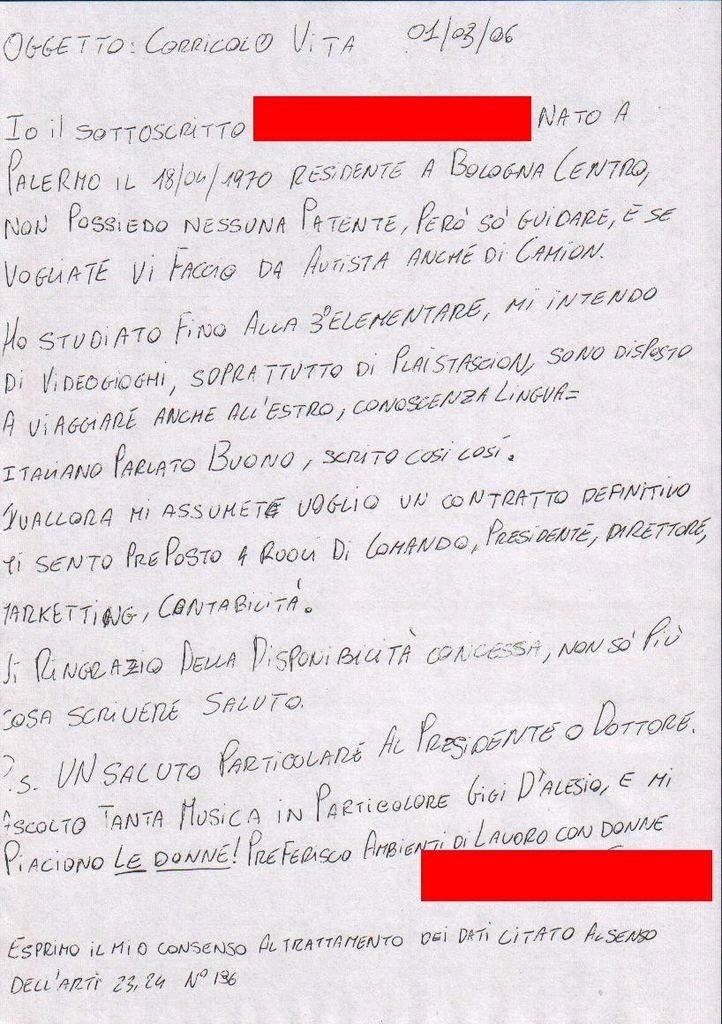 OGGETTO: CORRICOLO VITA 01/03/06
IO il SOTTOSCRITTO NATO A
PALERMO IL 18/04/1970 RESIDENTE A BOLOGNA CENTRO,
NON POSSIEDO NESSUNA PATENTE, PERÒ SÒ GUIDARE, E SE
VOGLIATE VI FACCIO DA AUTISTA ANCHE DI CAMION.
HO STUDIATO FINO ALLA 3°ELEMENTARE, MI INTENDO
DI VIDEOGIOGHI, SOPRATTUTTO DI PLAISTASCION, SONO DISPOSTO
A VIAGGIARE ANCHE ALL'ESTRO, CONOSCENZA LINGUA=
ITALIANO PARLATO BUONO, SCRITO COSÌ COSÍ.
QUALLORA MI ASSUMETE VOGLIO UN CONTRATTO DEFINITIVO
MI SENTO PREPOSTO A RUOLI DI COMANDO, PRESIDENTE, DIRETTORE,
MARKETTING, CONTABILITÁ.
VI RINGRAZIO DELLA DISPONIBILITÀ CONCESSA, NON SÒ PIÙ
COSA SCRIVERE SALUTO.
P.S. UN SALUTO PARTICOLARE AL PRESIDENTE O DOTTORE.
ASCOLTO TANTA MUSICA IN PARTICOLORE GIGI D'ALESIO, E MI
PIACIONO LE DONNE! PREFERISCO AMBIENTI DI LAVORO CON DONNE
ESPRIMO IL MIO CONSENSO AL TRATTAMENTO DEI DATI CITATO AL SENSO
DELL'ARTI 23,24 N° 196